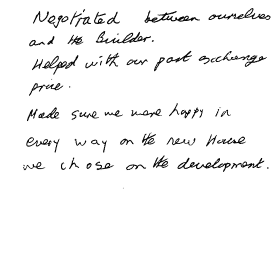 Negotiated between ourselves
and the Builder.
Helped with our part exchange
price.
Made sure we were happy in
every way on the new House
we chose on the development.